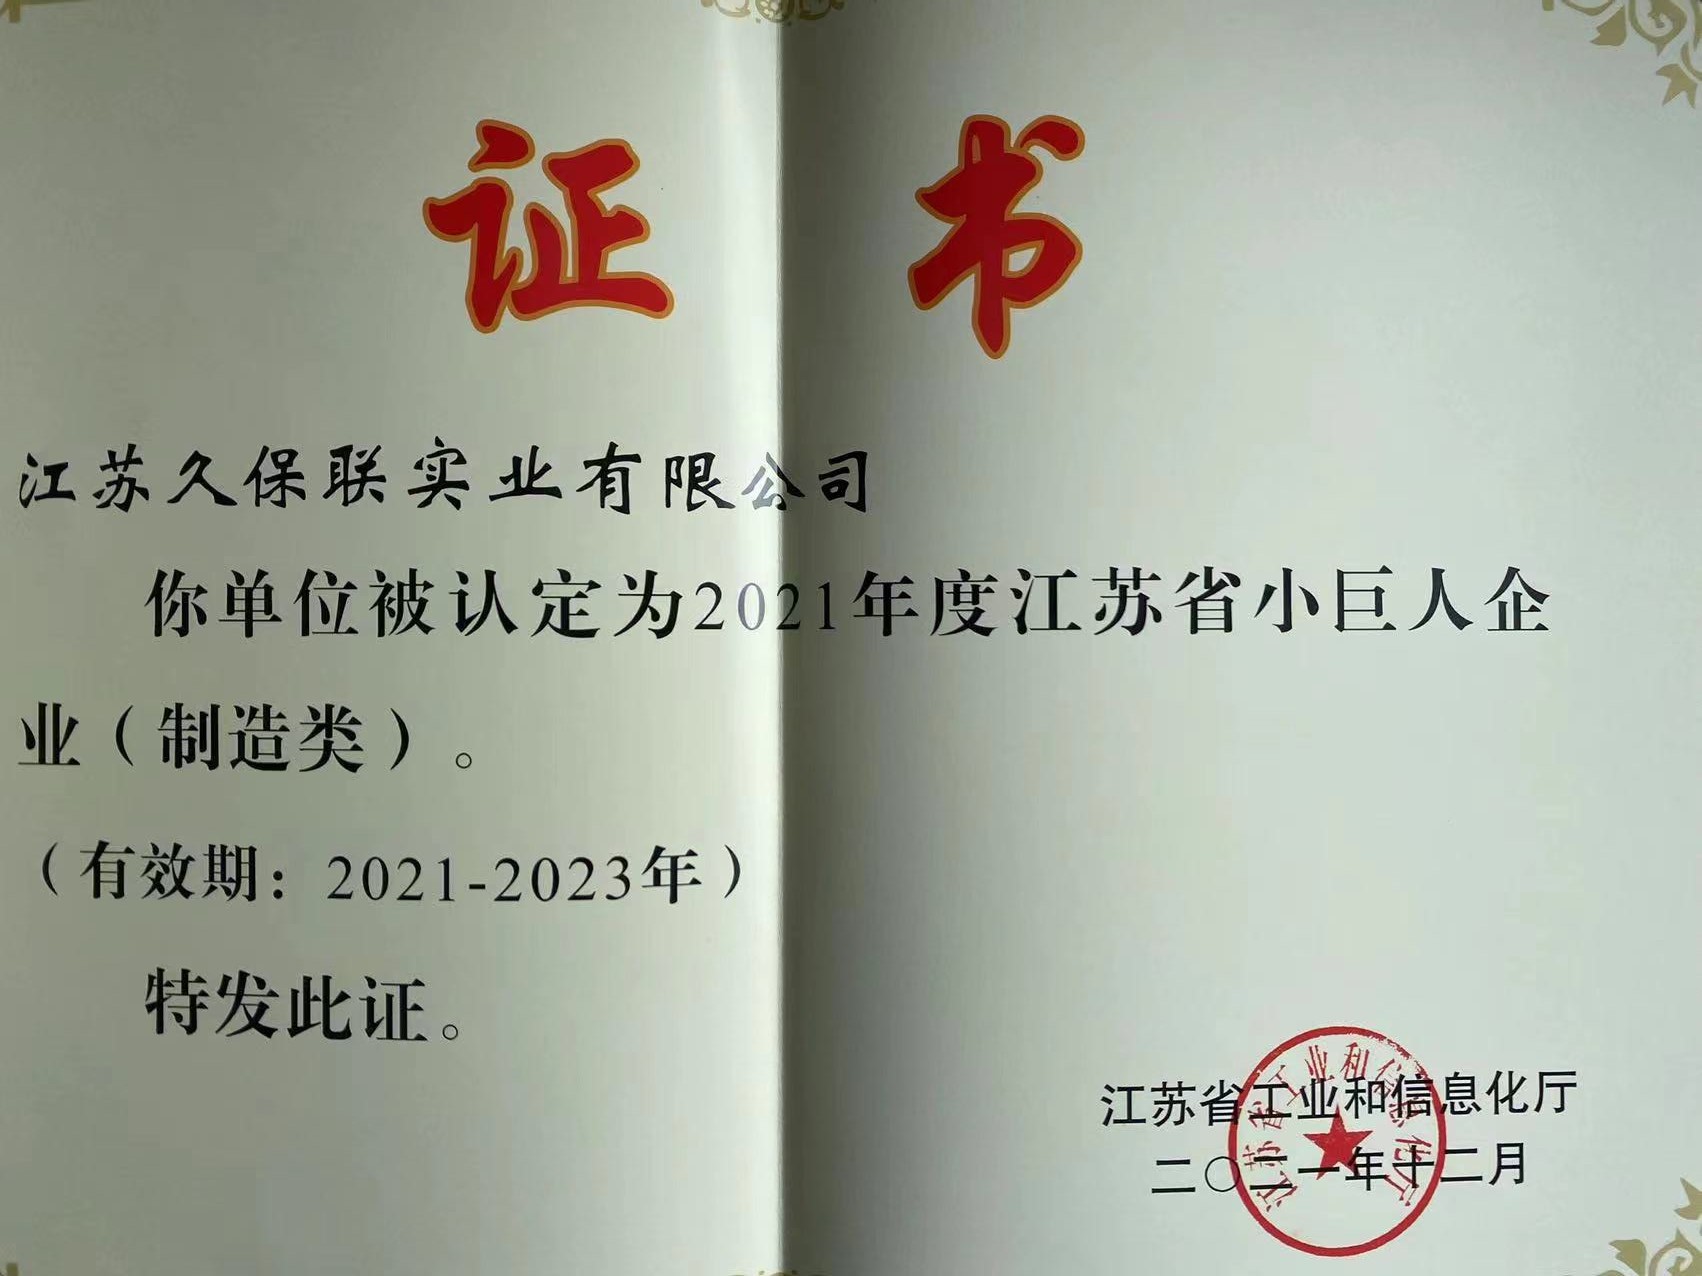 证书
江苏久保联实业有限公司
你单位被认定为2021年度江苏省小巨人企
业（制造类）。
（有效期：2021-2023年）
特发此证。
江苏省工业和信息化厅
二〇二一年十二月
江苏省工业和信息化厅